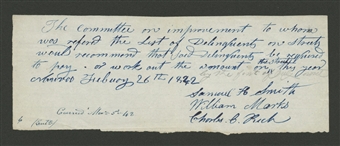 The Committee on improvement to whom
was referd the List of Delinquents on Streets
would recommend that said Delinquents be required
to pay or work out the amount on the Streets this year
Nauvoo Febuary 26th 1842
Samuel H Smith
William Marks
Charles C. Rich